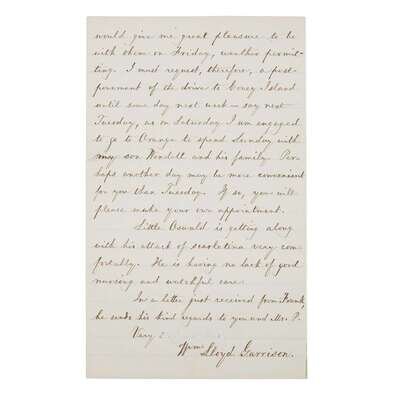 would give me great pleasure to be
with them on Friday, weather permit-
ting. I must request, therefore, a post-
ponement of the drive to Coney Island
until some day next week — say next
Tuesday, as on Saturday I am engaged
to go to Orange to spend Sunday with
my son Wendell and his family. Per-
haps another day may be more convenient
for you than Tuesday. If so, you will
please make your own appointment.
Little Oswald is getting along
with his attack of scarletina very com-
fortably. He is having no lack of good
nursing and watchful care.
In a letter just received from Frank,
he sends his kind regards to you and Mrs. P.
Very
Wm. Lloyd Garrison.